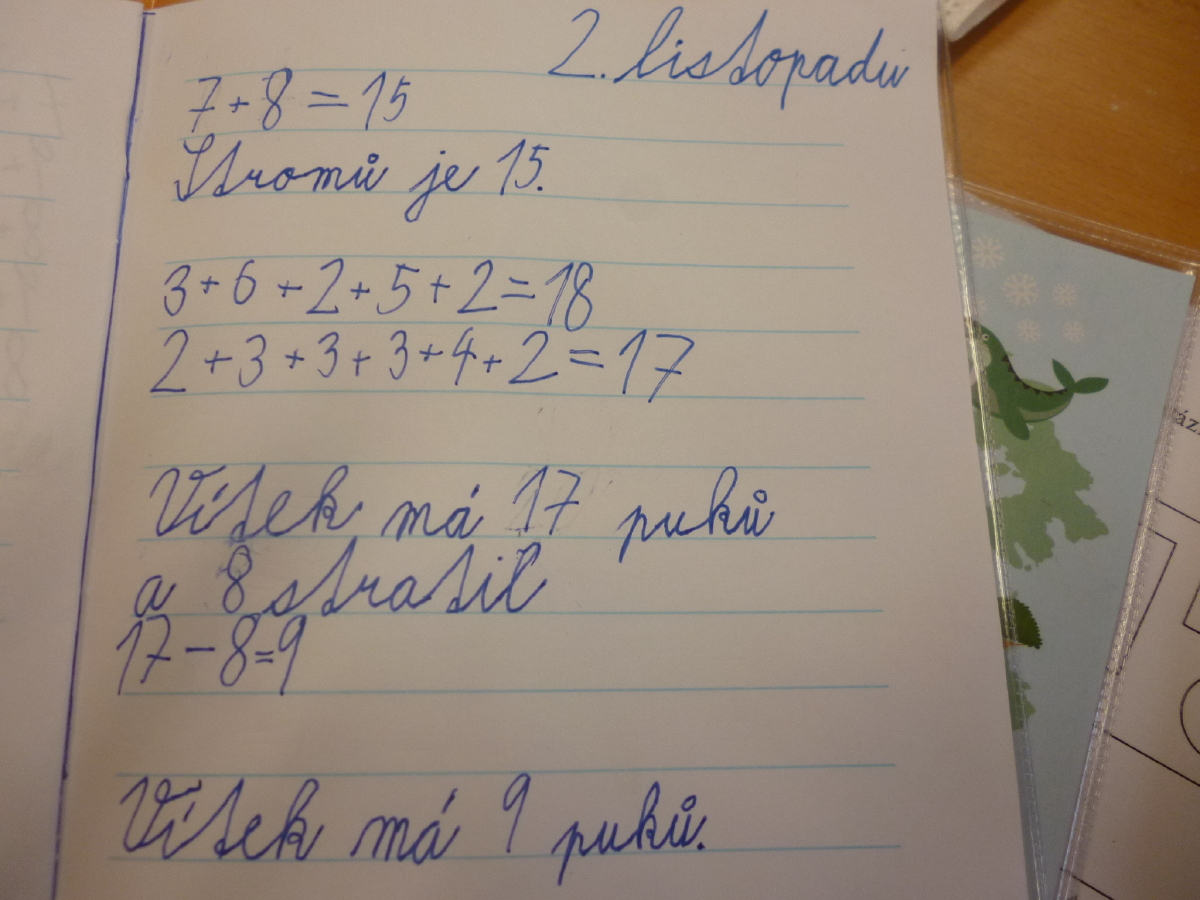 2. listopadu
7 + 8 = 15
Stromů je 15.
3 + 6 + 2 + 5 + 2 = 18
2 + 3 + 3 + 3 + 4 + 2 = 17
Vítek má 17 puků
a 8 stratil
17 - 8 = 9
Vítek má 9 puků.